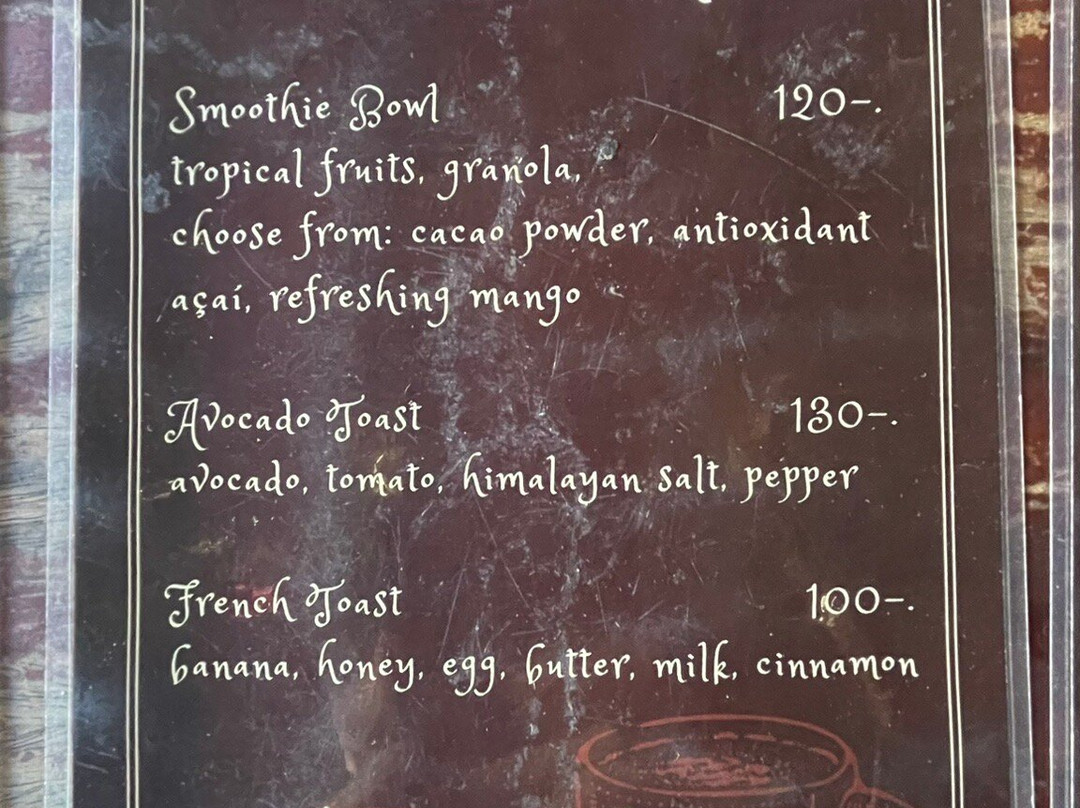 Smoothie Bowl 120-.
tropical fruits, granola,
choose from: cacao powder, antioxidant
açaí, refreshing mango
Avocado Toast 130-.
avocado, tomato, himalayan salt, pepper
French Toast 100-.
banana, honey, egg, butter, milk, cinnamon